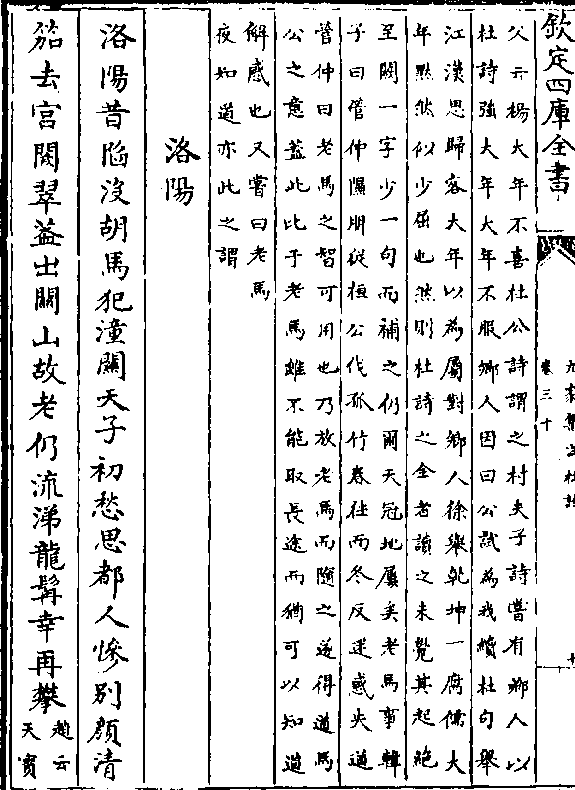 欽定四庫全書
九家集注杜詩
卷三十
父云楊大年不喜杜公詩謂之村夫子詩嘗有鄉人以
杜詩強大年大年不服鄉人因曰公試為我續杜句舉
江漢思歸客大年以為屬對鄉人徐舉乾坤一腐儒大
年黙然似少屈也然則杜詩之全者讀之未覺其起絶
至闕一字少一句而補之仍爾天冠地屨矣老馬事韓
子曰管仲隰朋從桓公伐孤竹春往而冬反迷惑失道
管仲曰老馬之智可用也乃放老馬而隨之遂得道馬
公之意葢此比于老馬雖不能取長途而猶可以知道
解惑也又嘗曰老馬
夜知道亦此之謂
洛陽
洛陽昔陷沒胡馬犯潼關天子初愁思都人慘別顔清
笳去宫闕翠葢出關山故老仍流涕龍髯幸再攀
趙云
天寳